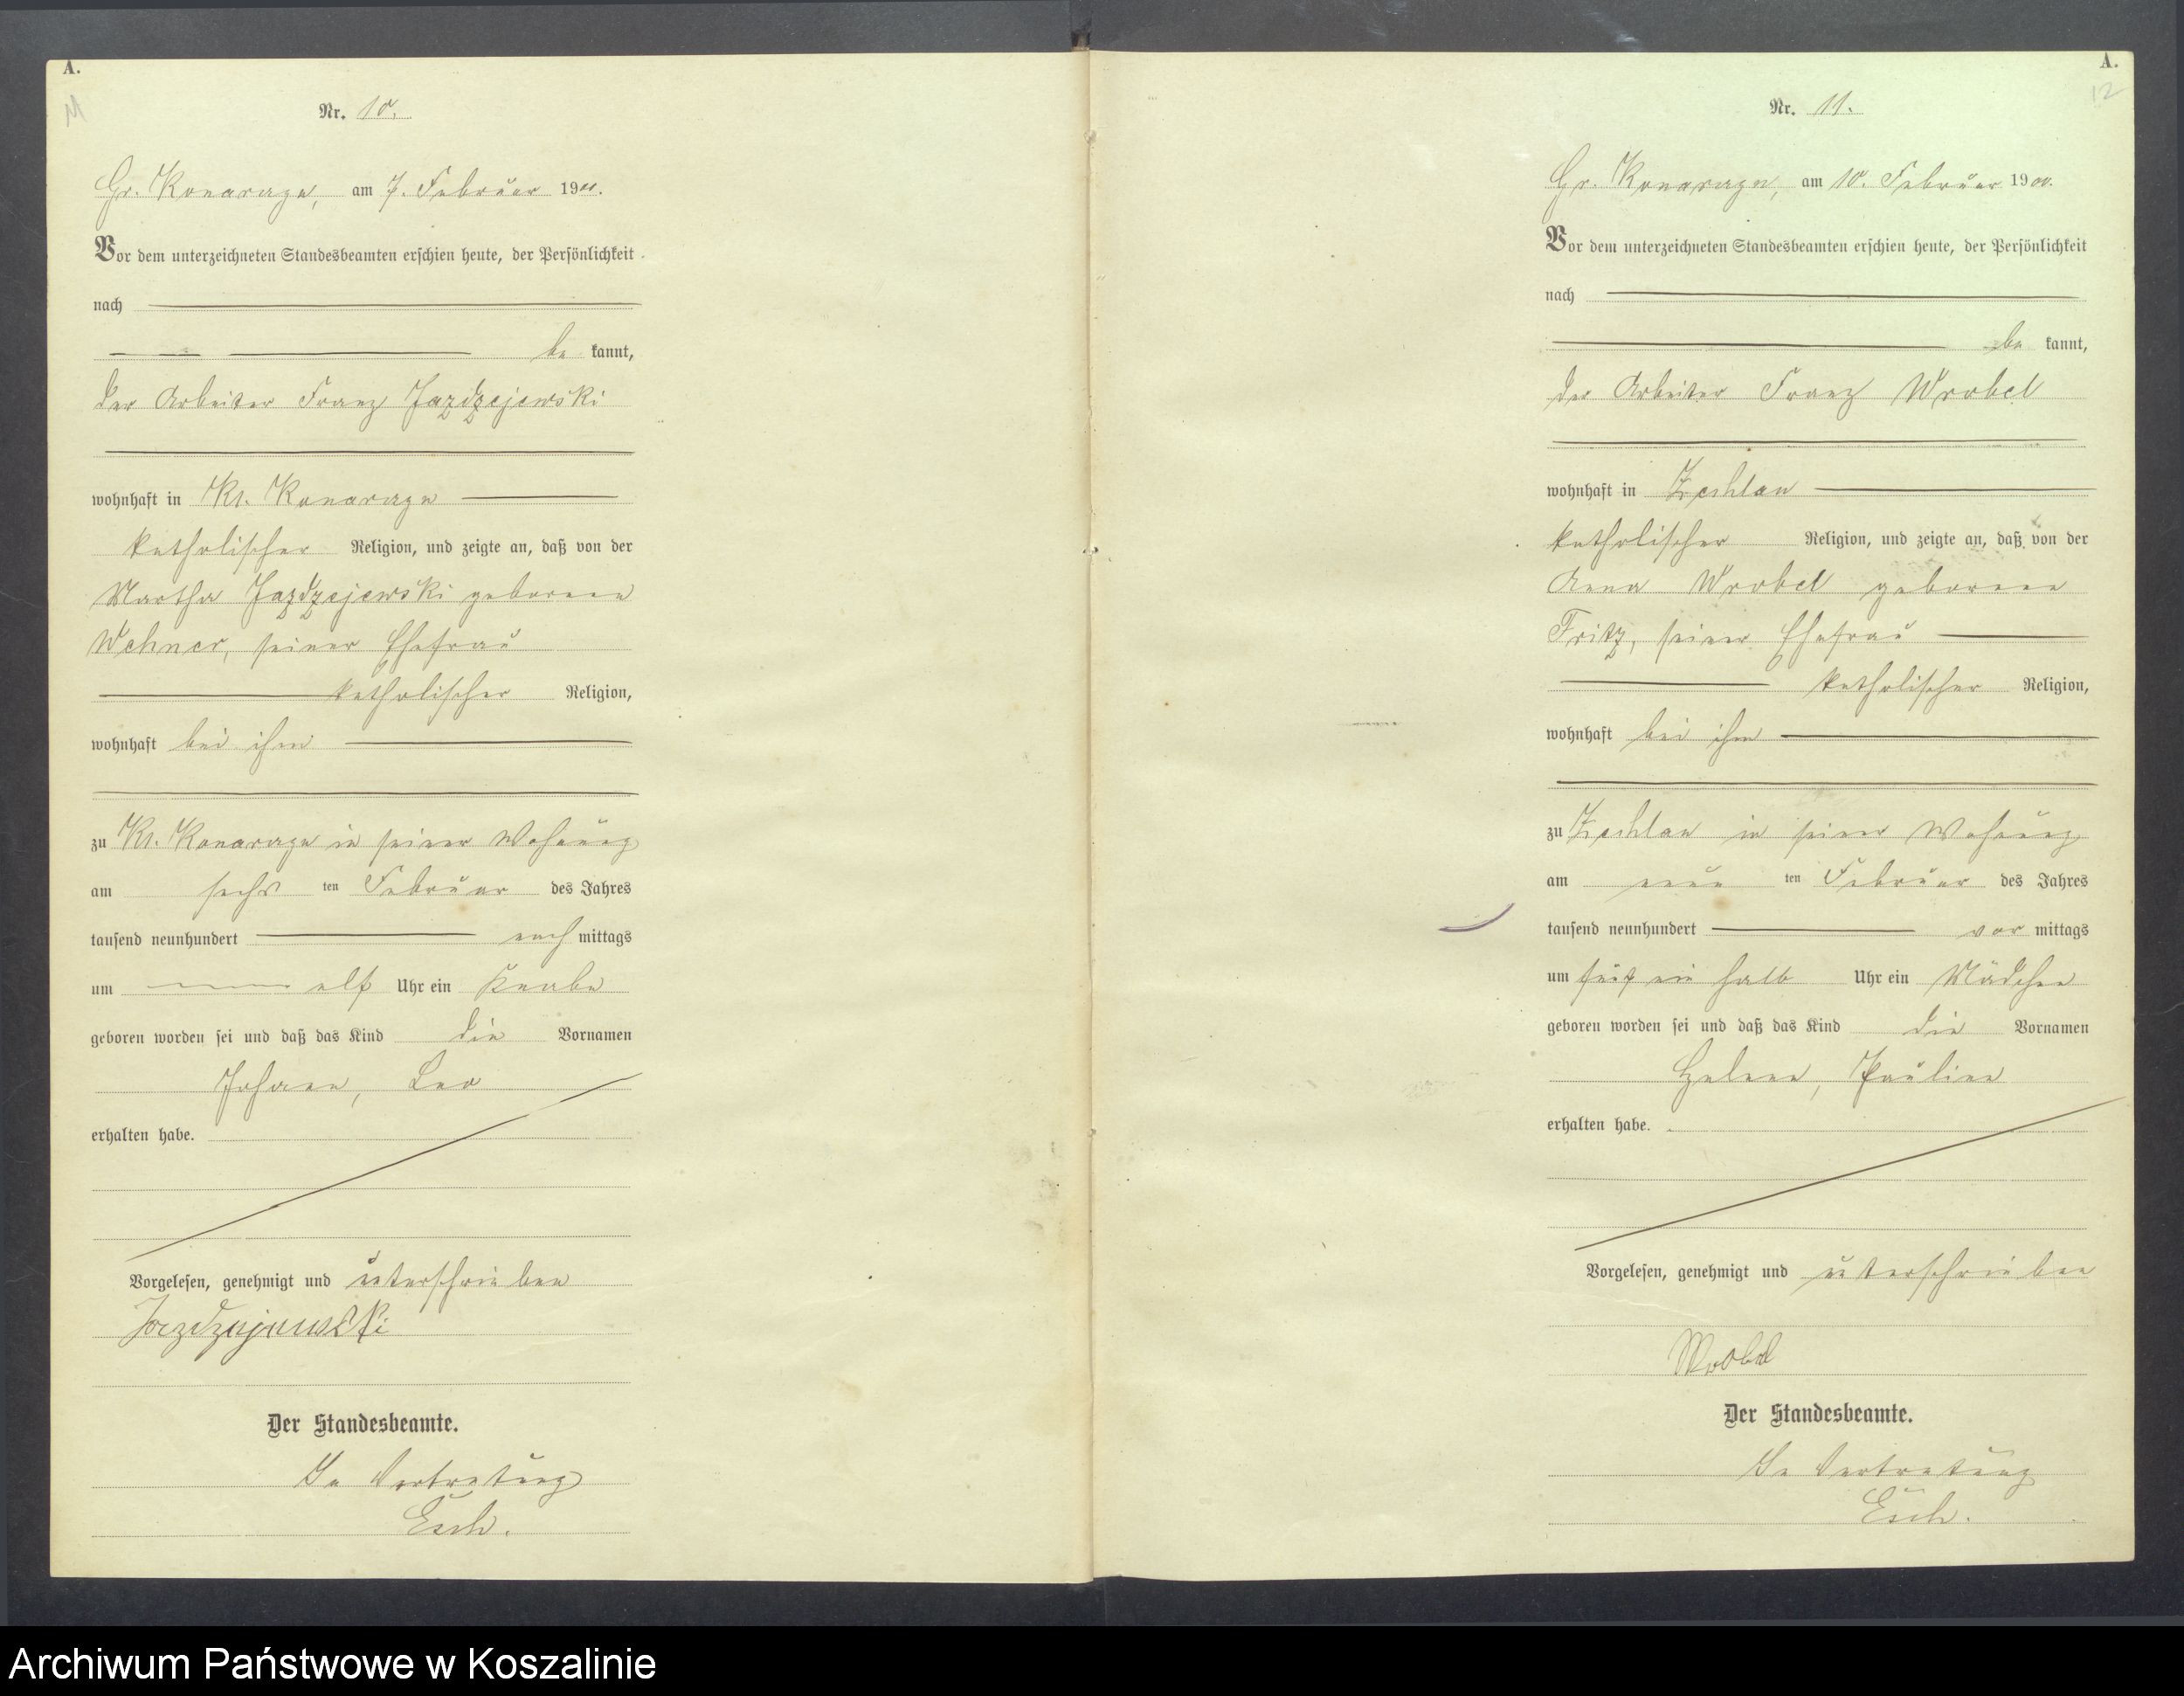 A.
11
Nr. 10.
Gr. Konarzyn, am 7. Februar 1900.
Vor dem unterzeichneten Standesbeamten erschien heute, der Persönlichkeit
nach
be kannt,
der Arbeiter Franz Jazdzejewski
wohnhaft in Kl. Konarzyn
katholischer Religion, und zeigte an, daß von der
Martha Jazdzejewski geborenen
Wehner, seiner Ehefrau
katholischer Religion,
wohnhaft bei ihm
zu Kl. Konarzyn in seiner Wohnung
am sechs ten Februar des Jahres
tausend neunhundert nach mittags
um elf Uhr ein Knabe
geboren worden sei und daß das Kind die Vornamen
Johann, Leo
erhalten habe.
Vorgelesen, genehmigt und unterschrieben
Jazdzejewski
Der Standesbeamte.
In Vertretung
Esch.
A.
12
Nr. 11.
Gr. Konarzyn, am 10. Februar 1900.
Vor dem unterzeichneten Standesbeamten erschien heute, der Persönlichkeit
nach
be kannt,
der Arbeiter Franz Wrobel
wohnhaft in Zechlau
katholischer Religion, und zeigte an, daß von der
Anna Wrobel geborenen
Fritz, seiner Ehefrau
katholischer Religion,
wohnhaft bei ihm
zu Zechlau in seiner Wohnung
am neun ten Februar des Jahres
tausend neunhundert vor mittags
um fünf ein halb Uhr ein Mädchen
geboren worden sei und daß das Kind die Vornamen
Helene, Pauline
erhalten habe.
Vorgelesen, genehmigt und unterschrieben
Wrobel
Der Standesbeamte.
In Vertretung
Esch.
Archiwum Państwowe w Koszalinie